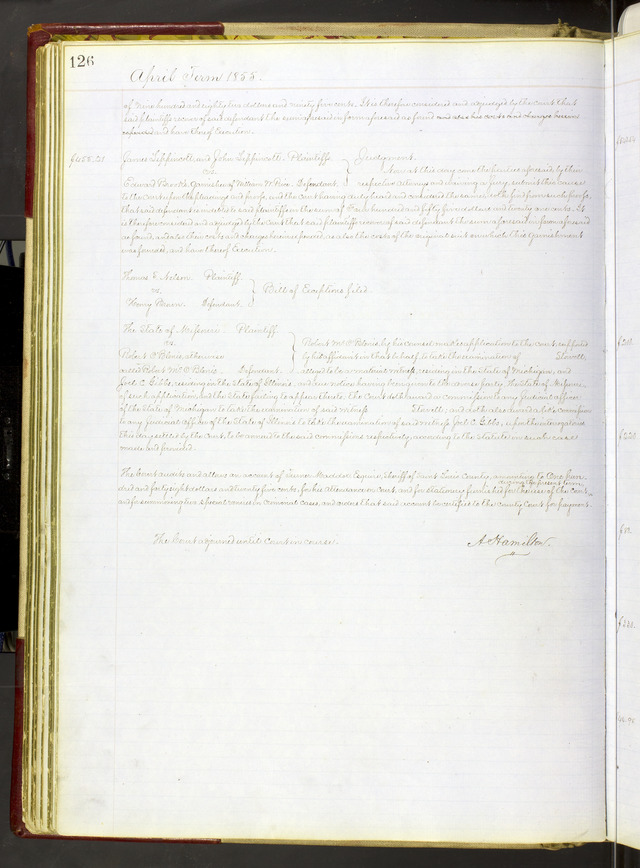 126
April Term 1855.
of nine hundred and eighty two dollars and ninety five cents. It is therefore considered and adjudged by the court that
said plaintiffs recover of said defendant the sum aforesaid in form aforesaid as found and also his costs and charges herein
expended and have thereof Execution.
$455.21 James Lippincott and John Lippincott Plaintiffs } Judgment.
vs. Now at this day come the parties aforesaid by their
Edward Garnishee of William W. Defendant. respective attorneys and waiving a jury, submit this cause
to the court upon the pleadings and proofs, and the court having duly heard and considered the same doth find from such proofs,
that said defendant is indebted to said plaintiffs in the sum of Four hundred and fifty five dollars and twenty one cents. It
is therefore considered and adjudged by the court that said plaintiffs recover of said defendant the sum aforesaid in form aforesaid
as found, and also their costs and charges herein expended, as also the costs of the original suit on which this Garnishment
was founded, and have thereof Execution.
Thomas S. Nelson Plaintiff
vs. } Bill of Exceptions filed.
Henry Defendant.
The State of Missouri Plaintiff
vs. Robert McO'Blenis, by his counsel makes application to the court, supported
Robert O'Blenis, otherwise by his affidavit in that behalf, to take the examination of Stovell
called Robert McO'Blenis. Defendant. alleged to be a material witness, residing in the State of Michigan, and
Joel C. Gibbs, residing in the State of Illinois, and due notice having been given to the adverse party, the State of Missouri
of such application, and the State failing to appear thereto. The Court doth award a commission to any Judicial officer
of the State of Michigan to take the examination of said witness Stovell; and doth also award a like commission
to any Judicial officer of the State of Illinois to take the examination of said witness Joel C. Gibbs, upon the interrogatories
this day settled by the Court, to be annexed to the said commissions respectively, according to the Statute in such case
made and provided.
The Court audits and allows an account of James Esquire, Sheriff of Saint Louis County, amounting to One hun-
during the present term
dred and forty eight dollars and ninety five cents, for his attendance on court, and for stationery furnished for the use of the Court,
and for summoning two special venires in Criminal cases, and orders that said account be certified to the County Court for payment.
The Court adjourned until Court in course.
A. Hamilton.